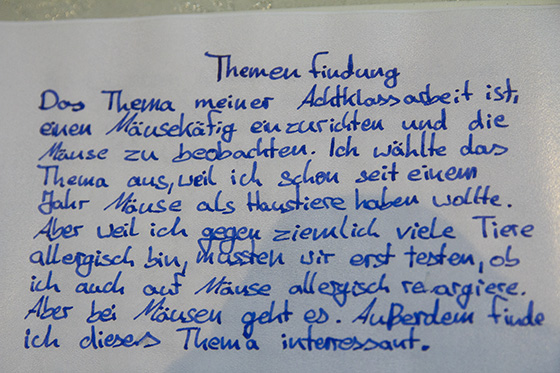 Themenfindung
Das Thema meiner Achtklassarbeit ist,
einen Mäusekäfig einzurichten und die
Mäuse zu beobachten. Ich wählte das
Thema aus, weil ich schon seit einem
Jahr Mäuse als Haustiere haben wollte.
Aber weil ich gegen ziemlich viele Tiere
allergisch bin, mussten wir erst testen, ob
ich auch auf Mäuse allergisch reargiere.
Aber bei Mäusen geht es. Außerdem finde
ich dieses Thema interessant.